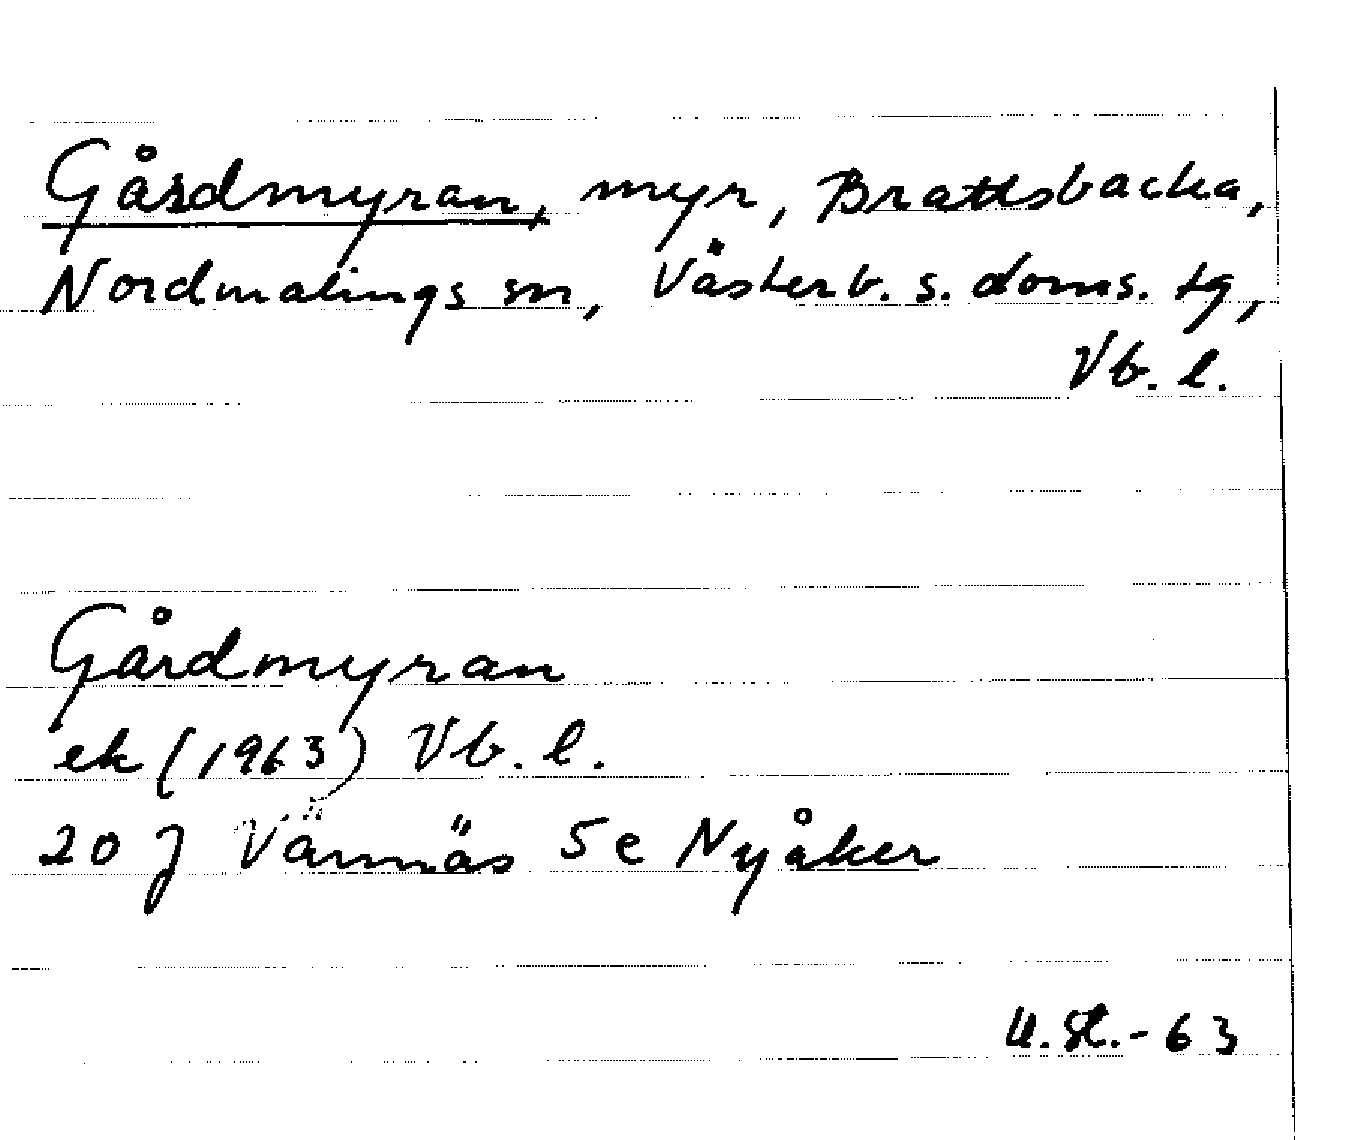 Gårdmyran, myr, Brattsbacka,
Nordmalings sn, Västerb. s. doms. tg,
Vb. l.
Gårdmyran
ek (1963) Vb. l.
20 J Vännäs 5e Nyåker
U. St. - 63